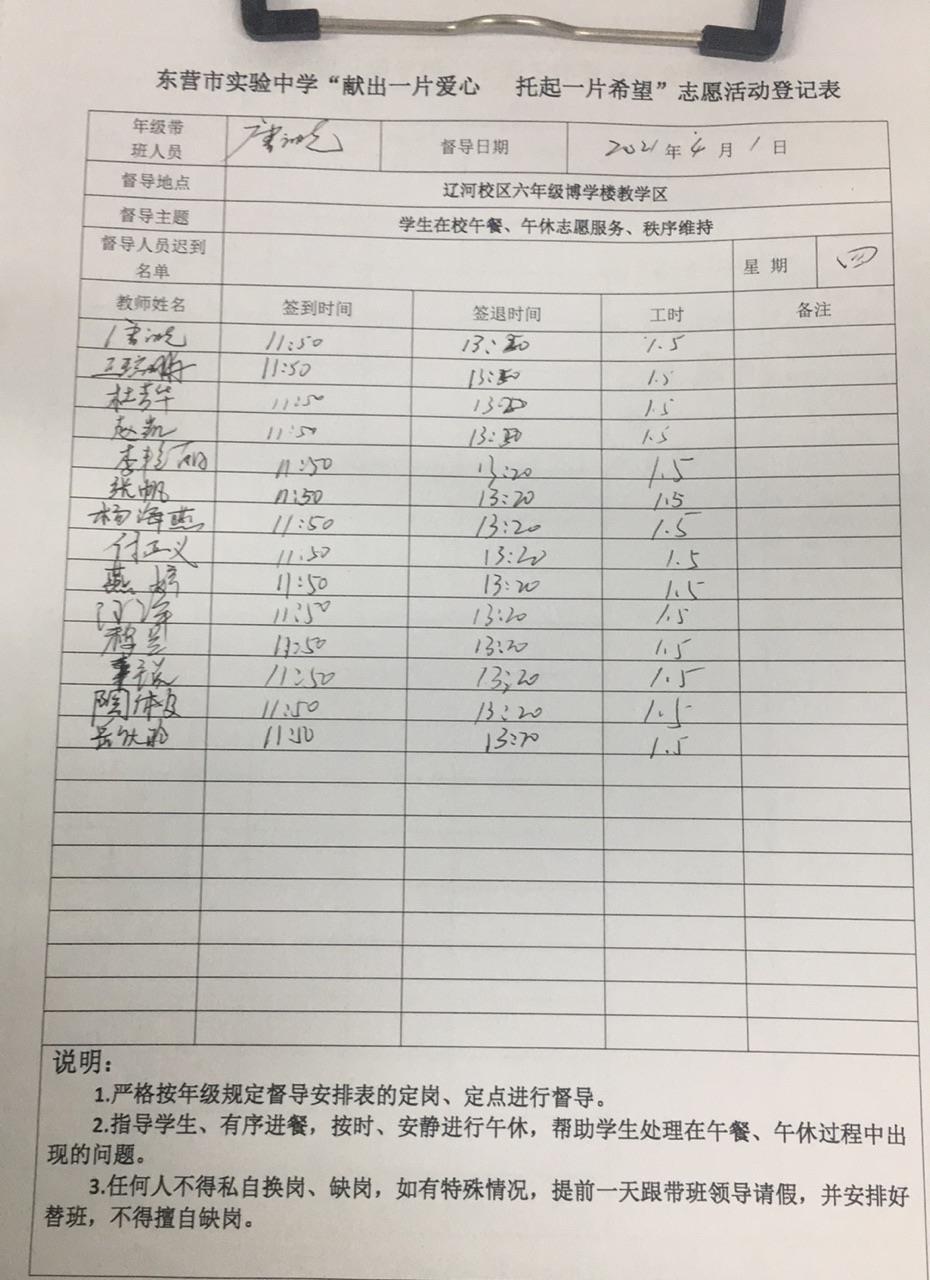 东营市实验中学“献出一片爱心 托起一片希望”志愿活动登记表
年级带班人员 督导日期 2021年4月1日
督导地点 辽河校区六年级博学楼教学区
督导主题 学生在校午餐、午休志愿服务、秩序维持
督导人员迟到名单 星期 四
教师姓名 签到时间 签退时间 工时 备注
11:50 13:20 1.5
11:50 13:20 1.5
杜芳华 11:50 13:20 1.5
赵凯 11:50 13:20 1.5
11:50 13:20 1.5
张帆 11:50 13:20 1.5
杨海燕 11:50 13:20 1.5
付正义 11:50 13:20 1.5
燕婷 11:50 13:20 1.5
11:50 13:20 1.5
11:50 13:20 1.5
11:50 13:20 1.5
陶 11:50 13:20 1.5
岳 11:50 13:20 1.5
说明：
1.严格按年级规定督导安排表的定岗、定点进行督导。
2.指导学生、有序进餐，按时、安静进行午休，帮助学生处理在午餐、午休过程中出
现的问题。
3.任何人不得私自换岗、缺岗，如有特殊情况，提前一天跟带班领导请假，并安排好
替班，不得擅自缺岗。